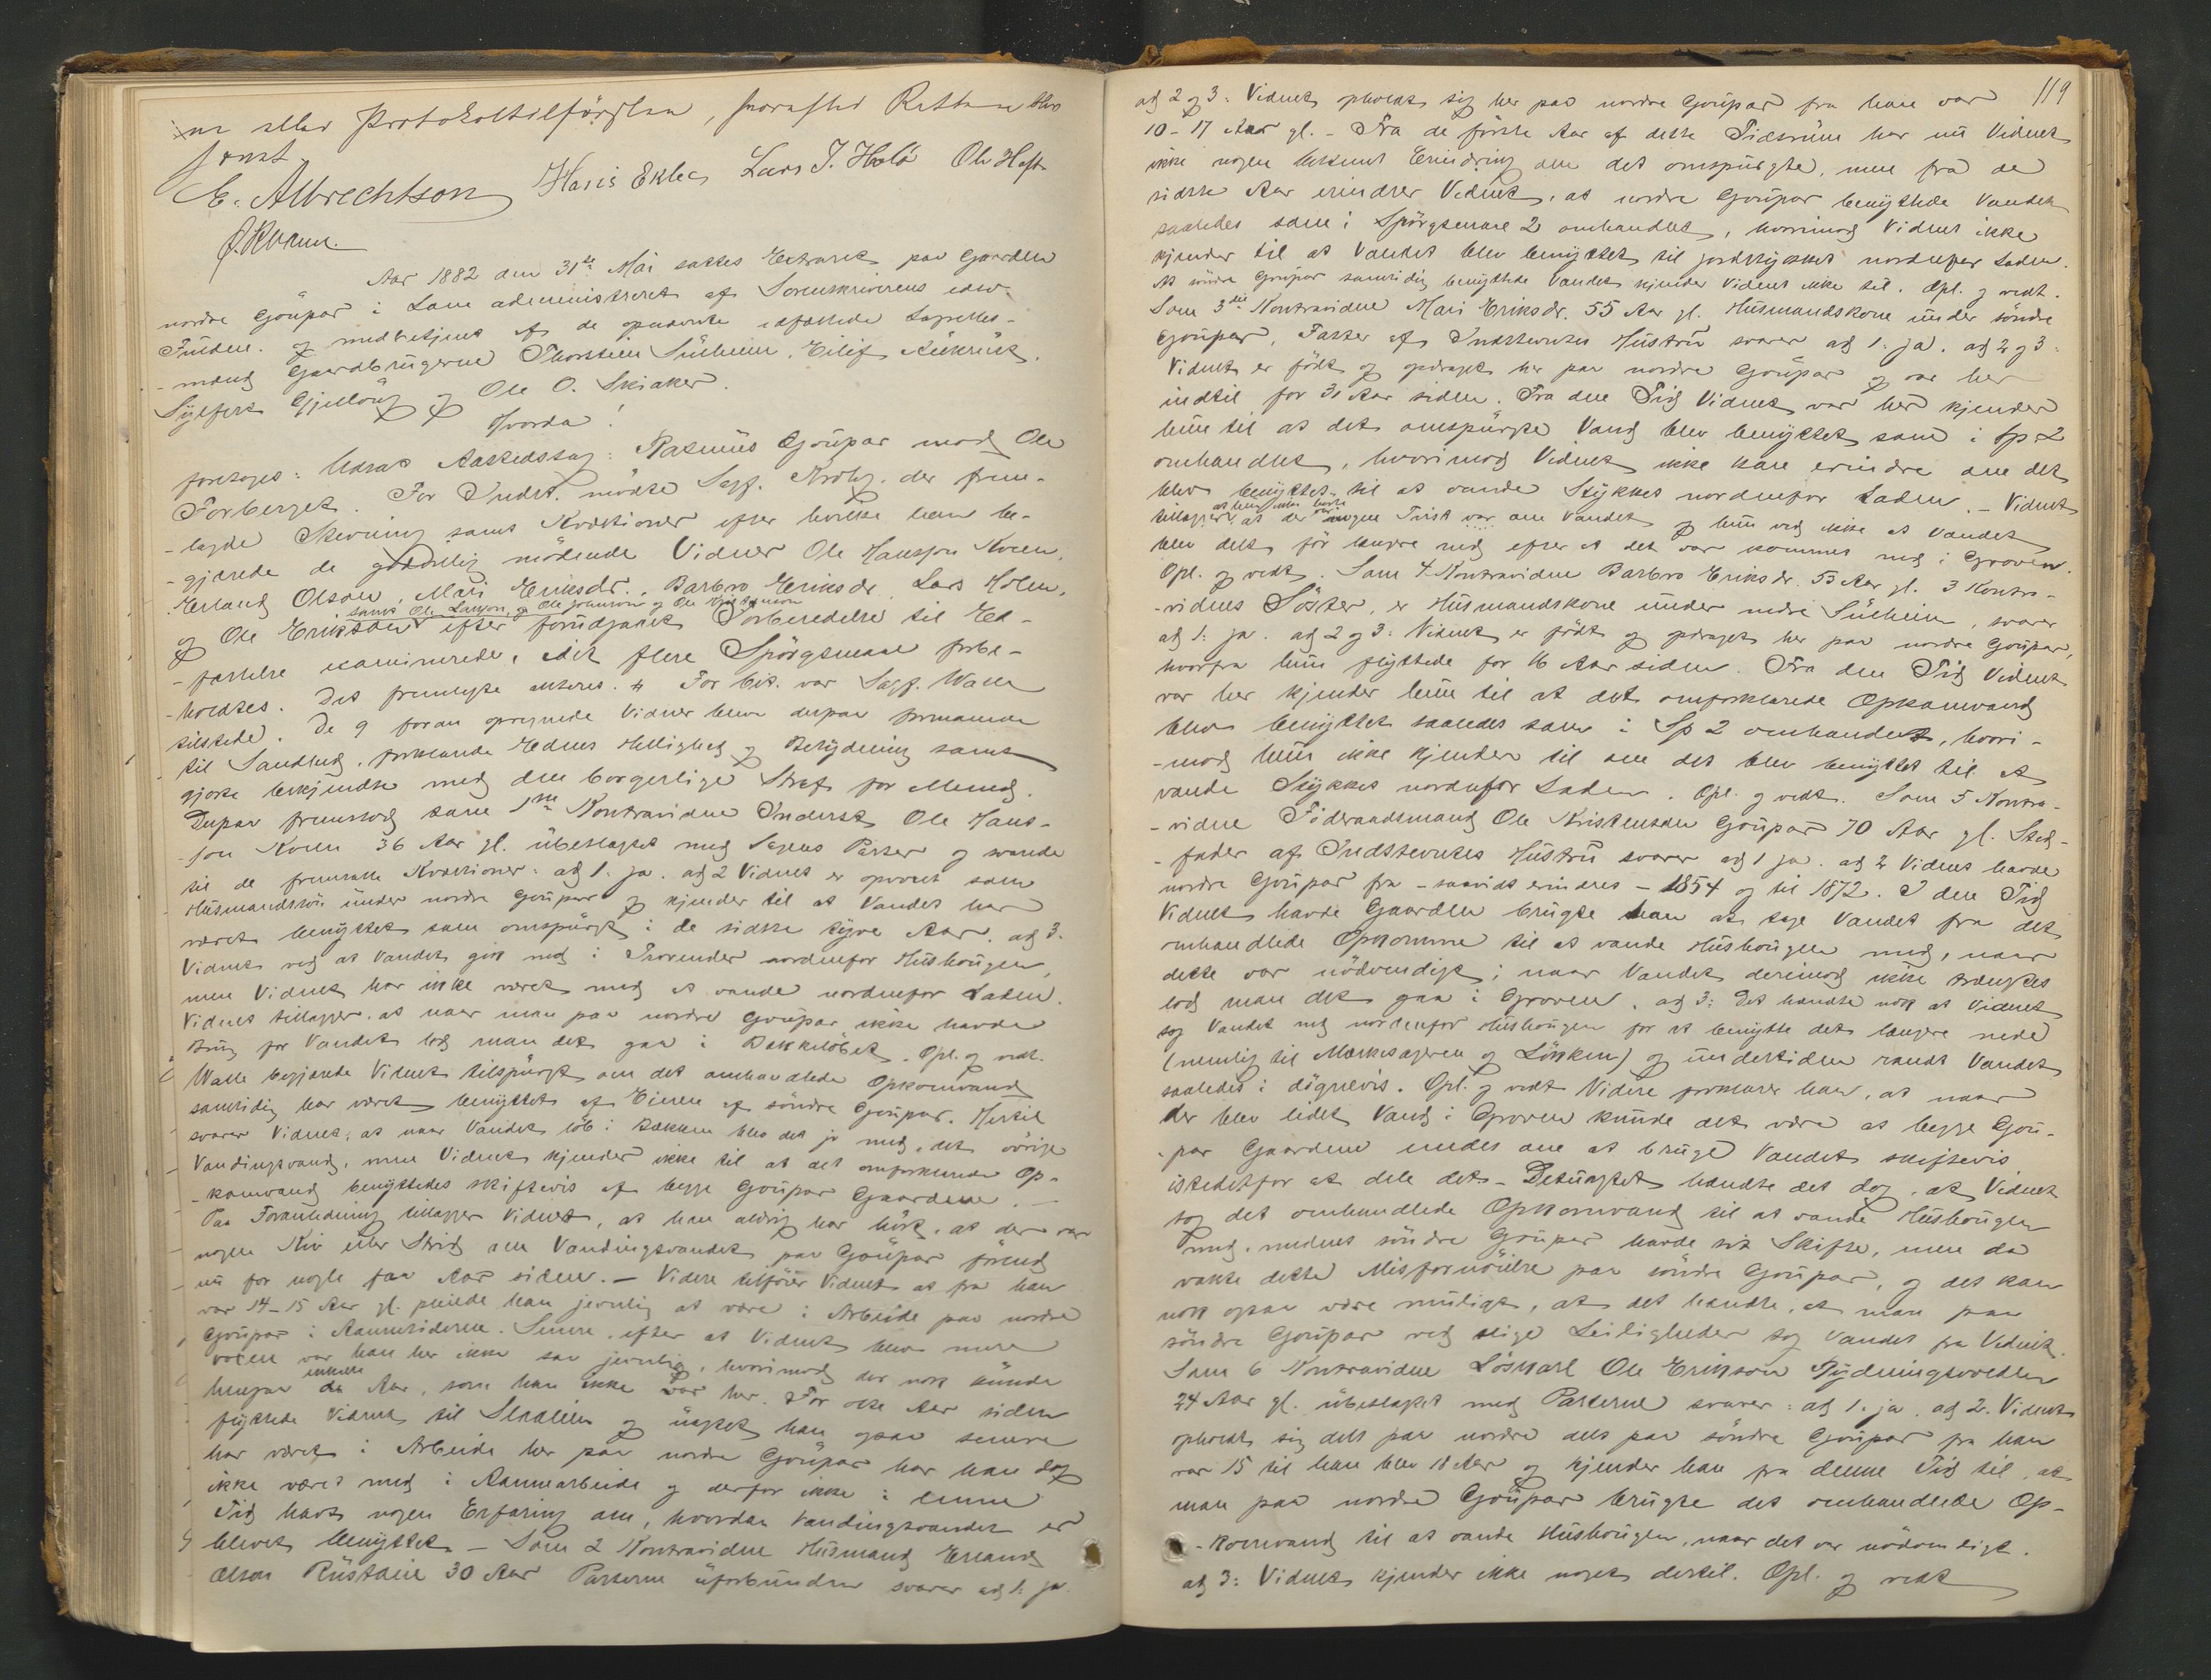 ne eller Protokoltilførslen, hvorefter Retten blev
hævet
E. Albrechtson Hans Ekle Lars J. Holö Ole Hoft
Ø. Kvarme.
Aar 1882 den 31te Mai sattes Extraret paa Gaarden
nordre Göupar i Lom administreret af Sorenskriverens edsv.
Fuldm. og medbetjent af de opnævnte edfæstede Lagrettes-
-mænd Gaardbrugerne Thorstein Sülheim, Eilif Aükrüst,
Sylfest Gjellöug og Ole O. Skiaker.
Hvorda!
foretoges: Udsat Aastedssag: Rasmus Goupar mod Ole
Forberget. For Indst. mødte Sagf. Krohg, der frem-
-lagde Stevning samt Kvæstioner efter hvilke han be-
-gjærede de godvillig mødende Vidner Ole Hansson Kveen,
Erland Olsen, Mari Eriksdr., Barbro Eriksdr, Lars Holen,
samt Ole Larsson, Ole Johnson og Ole Kristenson
og Ole Erikson efter forudgaaet Forberedelse til Ed-
-fæstelse examinerede, idet flere Spörgsmaal forbe-
-holdtes. Det fremlagte acteres. For Cit. var Sagf. Walle
tilstede. De 9 foran opregnede Vidner blev derpaa formanede
til Sandhed, forklarede Edens Hellighed og Betydning samt
gjorte bekjendte med den borgerlige Straf for Mened.
Derpaa fremstod som 1ste Kontravidne Inderst Ole Hans-
-son Kveen 36 Aar gl. übeslægtet med Sagens Parter og svarede
til de fremsatte Kvæstioner: ad 1. ja. ad 2 Vidnet er opvoxet som
Hüsmandssön ünder nordre Goüpar og kjender til at Vandet har
været benyttet som omspürgt i de sidste tyve Aar. ad 3.
Vidnet ved at Vandet gik ned i Grovender nordenfor Hüshougen,
men Vidnet har ikke været med at vande nordenfor Laden.
Vidnet tillægger, at naar man paa nordre Goüpar ikke havde
Brug for Vandet lod man det gaa i Bækkelöbet. Opl. og vedt.
Walle begjærede Vidnet tilspürgt om det omhandlede Opkomvand
samtidig har været benyttet af Eieren af söndre Goüpar. Hertil
svarer Vidnet, at naar Vandet löb i Bækken blev det jo med det övrige
Vandingsvand, men Vidnet kjender ikke til at det omforklarede Op-
-komvand benyttedes skiftevis af begge Goüpar Gaardene. -
Paa Foranledning tillægger Vidnet, at han aldrig har hört, at der var
nogen Kiv eller Strid om Vandingsvandet paa Goüpar förend
nü for nogle faa Aar siden. - Videre tilföier Vidnet at fra han
var 14-15 Aar gl. pleiede han jevnlig at være i Arbeide paa nordre
Goüpar i Aannetiderne. Senere, efter at Vidnet blev mere
voxen var han her ikke saa jevnlig, hvorimod der nok künde
hengaa enkelte Aar, som han ikke var her. For otte Aar siden
flyttede Vidnet til Skaalien og üagtet han ogsaa senere
har været i Arbeide her paa nordre Goüpar har han dog
ikke været med i Aannearbeide og derfor ikke i denne
Tid havt nogen Erfaring om, hvordan Vandingsvandet er
blevet benyttet. - Som 2 Kontravidne Hüsmand Erland
Olson Rüstøien 30 Aar Parterne üforbunden svarer ad 1. ja.
119
ad 2 og 3: Vidnet opholdt sig her paa nordre Goüpar fra han var
10-17 Aar gl. - Fra de første Aar af dette Tidsrüm har nü Vidnet
ikke nogen bestemt Erindring om det omspürgte, men fra de
sidste Aar erindrer Vidnet, at nordre Goüpar benyttede Vandet
saaledes som i Spörgsmaal 2 omhandlet, hvorimod Vidnet ikke
kjender til at Vandet blev benyttet til jordstykket nordenfor Laden.
At söndre Goüpar samtidig benyttede Vandet kjender Vidnet ikke til. Opl. og vedt.
Som 3die Kontravidne Mari Eriksdr. 55 Aar gl. Hüsmandskone ünder söndre
Goüpar, Faster af Indstevntes Hüstrü svarer ad 1. ja. ad 2 og 3:
Vidnet er född og opdraget her paa nordre Goüpar og var her
indtil for 31 Aar siden. Fra den Tid Vidnet var her kjender
hün til at det omspürgte Vand blev benyttet som i Sp 2
omhandlet, hvorimod Vidnet ikke kan erindre om det
blev benyttet til at vande Stykket nordenfor Laden. - Vidnet
tillægger at hun ikke hørte at der var nogen Tvist om Vandet og hün ved ikke at Vandet
blev delt för længere ned efter at det var kommet ned i Groven.
Opl. og vedt. Som 4 Kontravidne Barbro Eriksdr. 53 Aar gl. 3 Kontra-
-vidnes Söster, er Hüsmandskone ünder nedre Sülheim, svarer
ad 1: ja. ad 2 og 3: Vidnet er född og opdraget her paa nordre Goüpar,
hvorfra hün flyttede for 16 Aar siden. Fra den Tid Vidnet
var her kjender hün til at det omforklarede Opkomvand
blev benyttet saaledes som i Sp 2 omhandlet, hvori-
-mod hün ikke kjender til om det blev benyttet til at
vande Stykket nordenfor Laden. Opl. og vedt. Som 5 Kontra-
-vidne Föderaadsmand Ole Kristensen Goüpar 70 Aar gl. Sted-
-fader af Indstevntes Hüstrü svarer ad 1 ja. ad 2 Vidnet havde
nordre Goüpar fra - saavidt erindres - 1854 og til 1872. I den Tid
Vidnet havde Gaarden brügte han at tage Vandet fra det
omhandlede Opkomme til at vande Hüshougen med, naar
dette var nödvendigt; naar Vandet derimod ikke trængtes
lod man det gaa i Groven. ad 3: Det hændte nok at Vidnet
tog Vandet ned nordenfor Hüshougen for at benytte det længere nede
(nemlig til Markesageren og Lökken) og ündertiden randt Vandet
saaledes i dögnevis. Opl. og vedt Videre forklarer han, at naar
der blev lidet Vand i Groven künde det være at begge Goü-
-par Gaardene enedes om at brüge Vandet skiftevis
istedetfor at dele det. - Desüagtet hændte det dog, at Vidnet
tog det omhandlede Opkomvand til at vande Hüshougen
med, medens söndre Goüpar havde sit Skifte, men da
vakte dette Misfornöielse paa söndre Goüpar, og det kan
nok ogsaa være müligt, at det hændte, at man paa
söndre Goüpar ved slige Leiligheder tog Vandet fra Vidnet.
Som 6 Kontravidne Löskarl Ole Erikson Rydningsvolden
24 Aar gl. übeslægtet med Parterne svarer: ad 1. ja. ad 2. Vidnet
opholdt sig dels paa nordre dels paa söndre Goüpar fra han
var 15 til han blev 18 Aar og kjender han fra denne Tid til, at
man paa nordre Goüpar brügte det omhandlede Op-
-komvand til at vande Hüshougen, naar det var nödvendigt.
ad 3: Vidnet kjender ikke noget dertil. Opl. og vedt